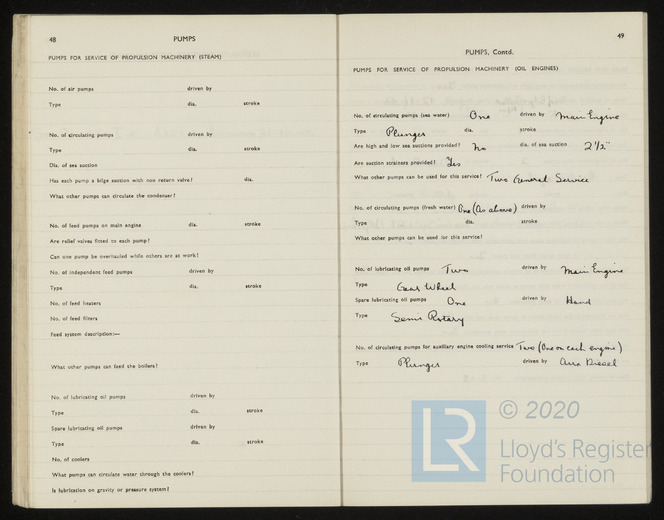 48
PUMPS
PUMPS FOR SERVICE OF PROPULSION MACHINERY (STEAM)
No. of air pumps driven by
Type dia. stroke
No. of circulating pumps driven by
Type dia. stroke
Dia. of sea suction
Has each pump a bilge suction with non return valve? dia.
What other pumps can circulate the condenser?
No. of feed pumps on main engine dia. stroke
Are relief valves fitted to each pump?
Can one pump be overhauled while others are at work?
No. of independent feed pumps driven by
Type dia. stroke
No. of feed heaters
No. of feed filters
Feed system description:—
What other pumps can feed the boilers?
No. of lubricating oil pumps driven by
Type dia. stroke
Spare lubricating oil pumps driven by
Type dia. stroke
No. of coolers
What pumps can circulate water through the coolers?
Is lubrication on gravity or pressure system?
49
PUMPS, Contd.
PUMPS FOR SERVICE OF PROPULSION MACHINERY (OIL ENGINES)
No. of circulating pumps (sea water) One driven by Main Engine
Type Plunger dia. stroke
Are high and low sea suctions provided? No dia. of sea suction 2½"
Are suction strainers provided? Yes
What other pumps can be used for this service? Two General Service
No. of circulating pumps (fresh water) One (As above) driven by
Type dia. stroke
What other pumps can be used for this service?
No. of lubricating oil pumps Two driven by Main Engine
Type Gear Wheel
Spare lubricating oil pumps One driven by Hand
Type Semi Rotary
No. of circulating pumps for auxiliary engine cooling service Two (One on each engine)
Type Plunger driven by Aux Diesel
LR
© 2020
Lloyd's Register
Foundation